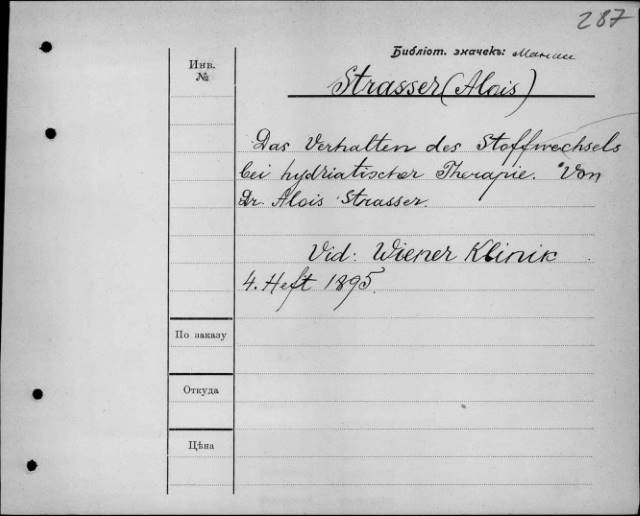 287
Библіот. значекъ:
Инв.
№
Strasser (Alois)
Das Verhalten des Stoffwechsels
bei hydriatischer Therapie. Von
Dr. Alois Strasser.
Vid: Wiener Klinik
4. Heft 1895.
По заказу
Откуда
Цѣна